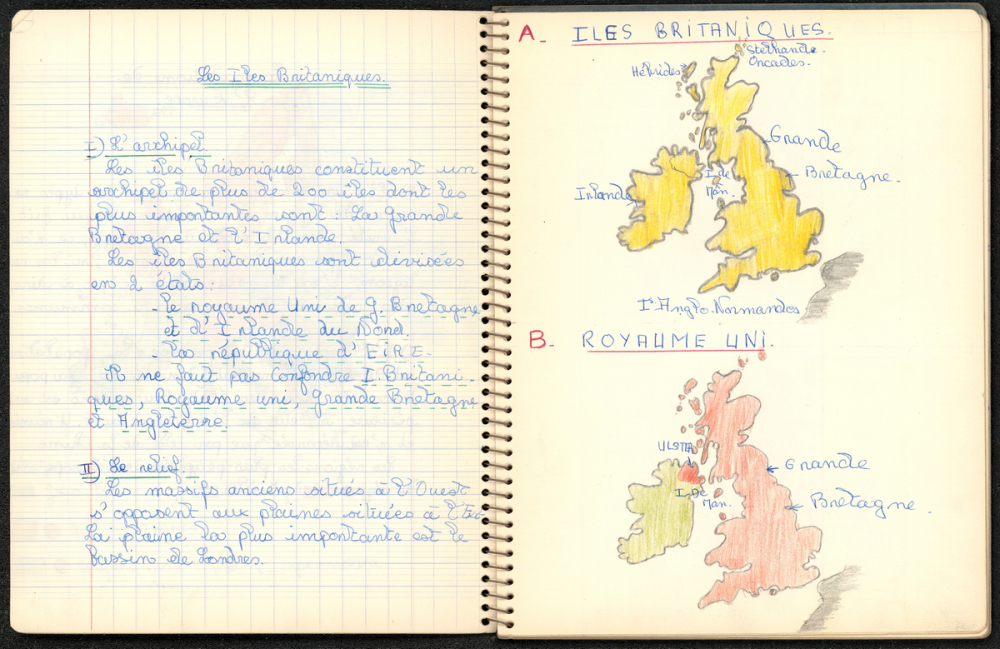 Les Iles Britaniques.
I) L'archipel.
Les îles Britaniques constituent un
archipel de plus de 200 îles dont les
plus importantes sont : La Grande
Bretagne et l'Irlande.
Les îles Britaniques sont divisées
en 2 états :
- le royaume Uni de G. Bretagne
et d'Irlande du Nord.
- la république d'EIRE.
Il ne faut pas confondre I. Britani-
ques, Royaume uni, Grande Bretagne
et Angleterre.
II) Le relief.
Les massifs anciens situés à l'Ouest
s'opposent aux plaines situées à l'Est
La plaine la plus importante est le
bassin de Londres.
A. ILES BRITANIQUES.
Stethande.
Orcades.
Hébrides
Grande
Bretagne.
I. de
Man.
Irlande
Is Anglo-Normandes
B. ROYAUME UNI.
ULSTER
Grande
I. de
Man.
Bretagne.